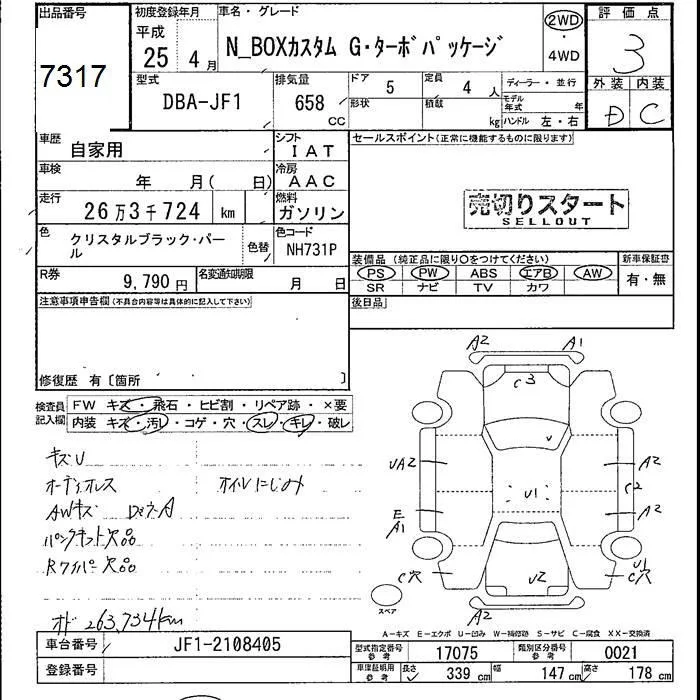 出品番号 初度登録年月 車名・グレード 評価点
7317 平成 25 年 4 月 N_BOXカスタム G・ターボパッケージ 2WD・4WD 3
型式 排気量 ドア 定員 ディーラー・並行 外装 内装
DBA-JF1 658 CC 5 4 人 D C
形状 積載 kg モデル年式 年 ハンドル 左・右
車歴 自家用 シフト IAT セールスポイント(正常に機能するものに限ります)
車検 年 月( 日) 冷房 AAC
走行 26万3千724 km 燃料 ガソリン 売切りスタート
SELLOUT
色 クリスタルブラック・パール 色替 色コード NH731P
装備品(純正品に限り○をつけてください) 新車保証書
PS PW ABS エアB AW 有・無
SR ナビ TV カワ
R券 9,790 円 名変通知期限 月 日
注意事項申告欄(不具合内容等は具体的に記入して下さい) 後日品
修復歴 有〔箇所 〕
検査員記入欄 FW キズ・飛石・ヒビ割・リペア跡・×要
内装 キズ・汚レ・コゲ・穴・スレ・キレ・破レ
キズU
オーディオレス オイルにじみ
AWキズ
パンクキット欠品
Rワイパー欠品
オド 263,734km
A2 A1
C3
UA2 A2
U1 C2
E A2
A1
C穴 U1
C穴
U2
A2
スペア
A-キズ E-エクボ U-凹み W-補修跡 S-サビ C-腐食 XX-交換済
車台番号 JF1-2108405 型式指定番号 参考 17075 類別区分番号 参考 0021
登録番号 車庫証明用 参考 長さ 339 cm 幅 147 cm 高さ 178 cm